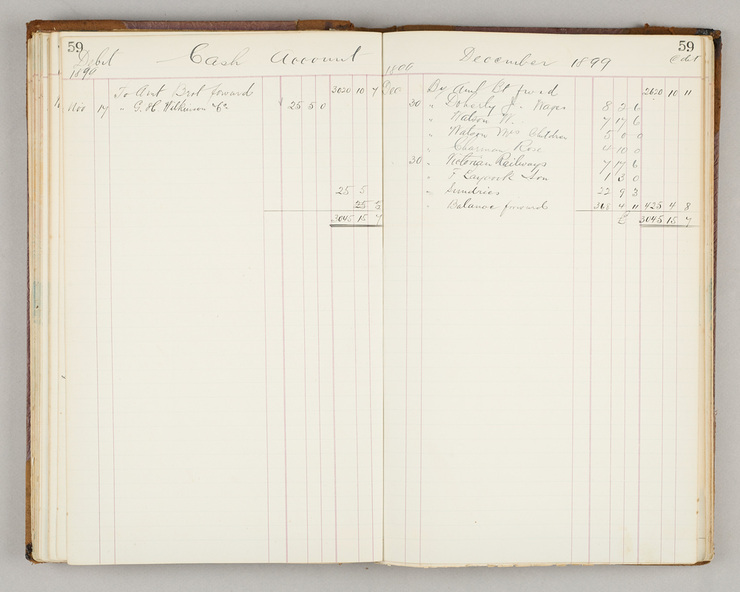 59
Debit Cash Account
1899
To Amt Brot forward 3020 10 7
Nov 17 " G. H. Wilkinson & Co 25 5 0
25 5
25 5
3045 15 7
59
December 1899 Cdt
1899
By Amt Bt frwd 2620 10 11
30 " Doherty J. Wages 8 2 6
" Watson W. " 7 17 6
" Watson Children 5 0 0
" Charman Rose 4 10 0
30 " Victorian Railways 7 17 6
" F Laycock & Son 1 3 0
" Sundries 22 9 3
" Balance forward 368 4 11 425 4 8
£ 3045 15 7